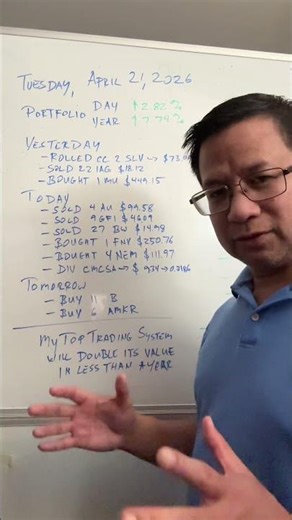 TUESDAY, APRIL 21, 2026
PORTFOLIO DAY ↑2.82%
YEAR ↑7.74%
YESTERDAY
- ROLLED CC 2 SLV → $73
- SOLD 22 IAG $18.12
- BOUGHT 1 $449.15
TODAY
- SOLD 4 AU $99.58
- SOLD 9 GFI $46.09
- SOLD 27 BW $14.98
- BOUGHT 1 FNV $250.76
- BOUGHT 4 NEM $111.97
- DIV CMCSA →
TOMORROW
- BUY B
- BUY AMKR
MY TOP TRADING SYSTEM
WILL DOUBLE ITS VALUE
IN LESS THAN A YEAR